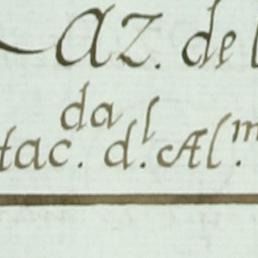 Az. de l
Hac.da d.l Al.m